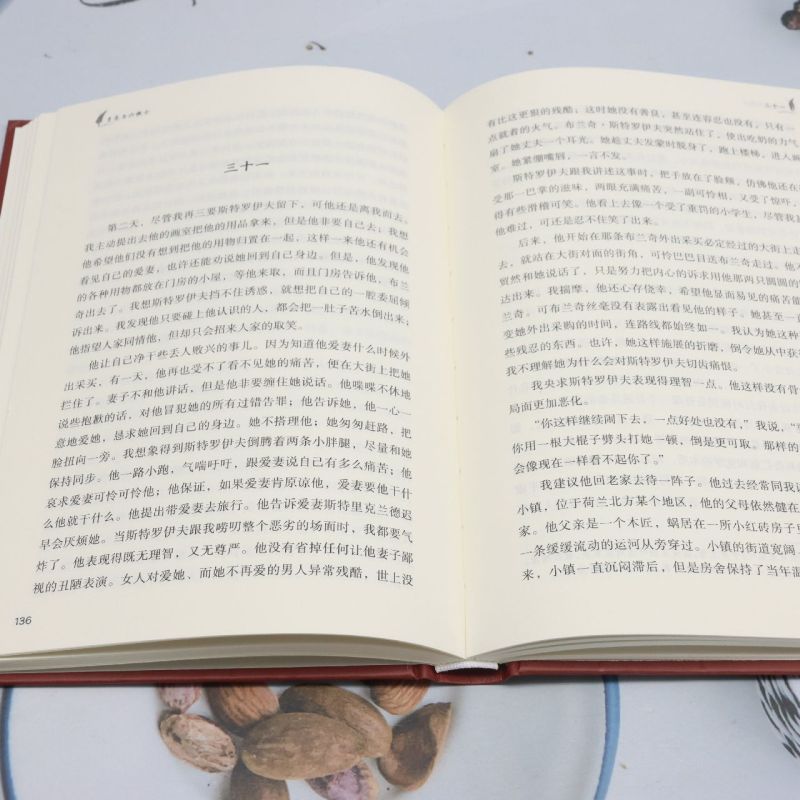 月亮与六便士
三十一
第二天，尽管我再三要斯特罗伊夫留下，可他还是离我而去。
我主动提出去他的画室把他的用品拿来，但是他非要自己去；我想
他希望他们没有想到把他的用物归置在一起，这样一来他还有机会
看见自己的爱妻，也许还能劝说她回到自己身边。但是，他发现他
的各种用物都放在门房的小屋，等他来取，而且门房告诉他，布兰
奇出去了。我想斯特罗伊夫挡不住诱惑，就想把自己的一腔委屈倾
诉出来。我发现他只要碰上他认识的人，都会把一肚子苦水倒出来；
他指望人家同情他，但却只会招来人家的取笑。
他让自己净干些丢人败兴的事儿。因为知道他爱妻什么时候外
出采买，有一天，他再也受不了看不见她的痛苦，便在大街上把她
拦住了。妻子不和他讲话，但是他非要缠住她说话。他喋喋不休地
说些抱歉的话，对他冒犯她的所有过错告罪；他告诉她，他一心一
意地爱她，恳求她回到自己的身边。她不搭理他；她匆匆赶路，把
脸扭向一旁。我想象得到斯特罗伊夫倒腾着两条小胖腿，尽量和她
保持同步。他一路小跑，气喘吁吁，跟爱妻说自己有多么痛苦；他
哀求爱妻可怜可怜他；他保证，如果爱妻肯原谅他，爱妻要他干什
么他就干什么。他提出带爱妻去旅行。他告诉爱妻斯特里克兰德迟
早会厌烦她。当斯特罗伊夫跟我唠叨整个恶劣的场面时，我都要气
炸了。他表现得既无理智，又无尊严。他没有省掉任何让他妻子鄙
视的丑陋表演。女人对爱她、而她不再爱的男人异常残酷，世上没
136
三十一
有比这更狠的残酷；这时她没有善良，甚至连容忍也没有，只有一
点就着的火气。布兰奇·斯特罗伊夫突然站住了，使出吃奶的力气
扇了她丈夫一个耳光。她趁丈夫发蒙时脱身了，跑上楼梯，进入画
室。她紧绷嘴唇，一言不发。
斯特罗伊夫跟我讲述这事时，把手放在了脸颊，仿佛他还在
受那一巴掌的滋味，两眼充满痛苦，一副可怜相，又受了惊吓，
得有些滑稽可笑。他看上去像一个受了重罚的小学生，尽管我
他难过，可还是忍不住笑了出来。
后来，他开始在那条布兰奇外出采买必定经过的大街上走
去，就站在大街对面的街角，可怜巴巴目送布兰奇走过。他不
贸然和她说话了，只是努力把内心的诉求用他那两只圆圆的
达出来。我揣摩，他还心存侥幸，希望他显而易见的痛苦能
兰奇。可布兰奇丝毫没有表露出看见他的样子。她甚至一直
变她外出采购的时间，连路线都始终如一。我认为她这种
些残忍的东西。也许，她这样施展的折磨，倒令她从中获
我不理解她为什么会对斯特罗伊夫切齿痛恨。
我央求斯特罗伊夫表现得理智一点。他这样没有骨
局面更加恶化。
“你这样继续闹下去，一点好处也没有，”我说，
你用一根大棍子劈头打她一顿，倒是更可取。那样的
会像现在一样看不起你了。”
我建议他回老家去待一阵子。他过去经常同我讲
小镇，位于荷兰北方某个地区，他的父母依然健在
家。他父亲是一个木匠，蜗居在一所小红砖房子
一条缓缓流动的运河从旁穿过。小镇的街道宽阔
来，小镇一直沉闷滞后，但是房舍保持了当年